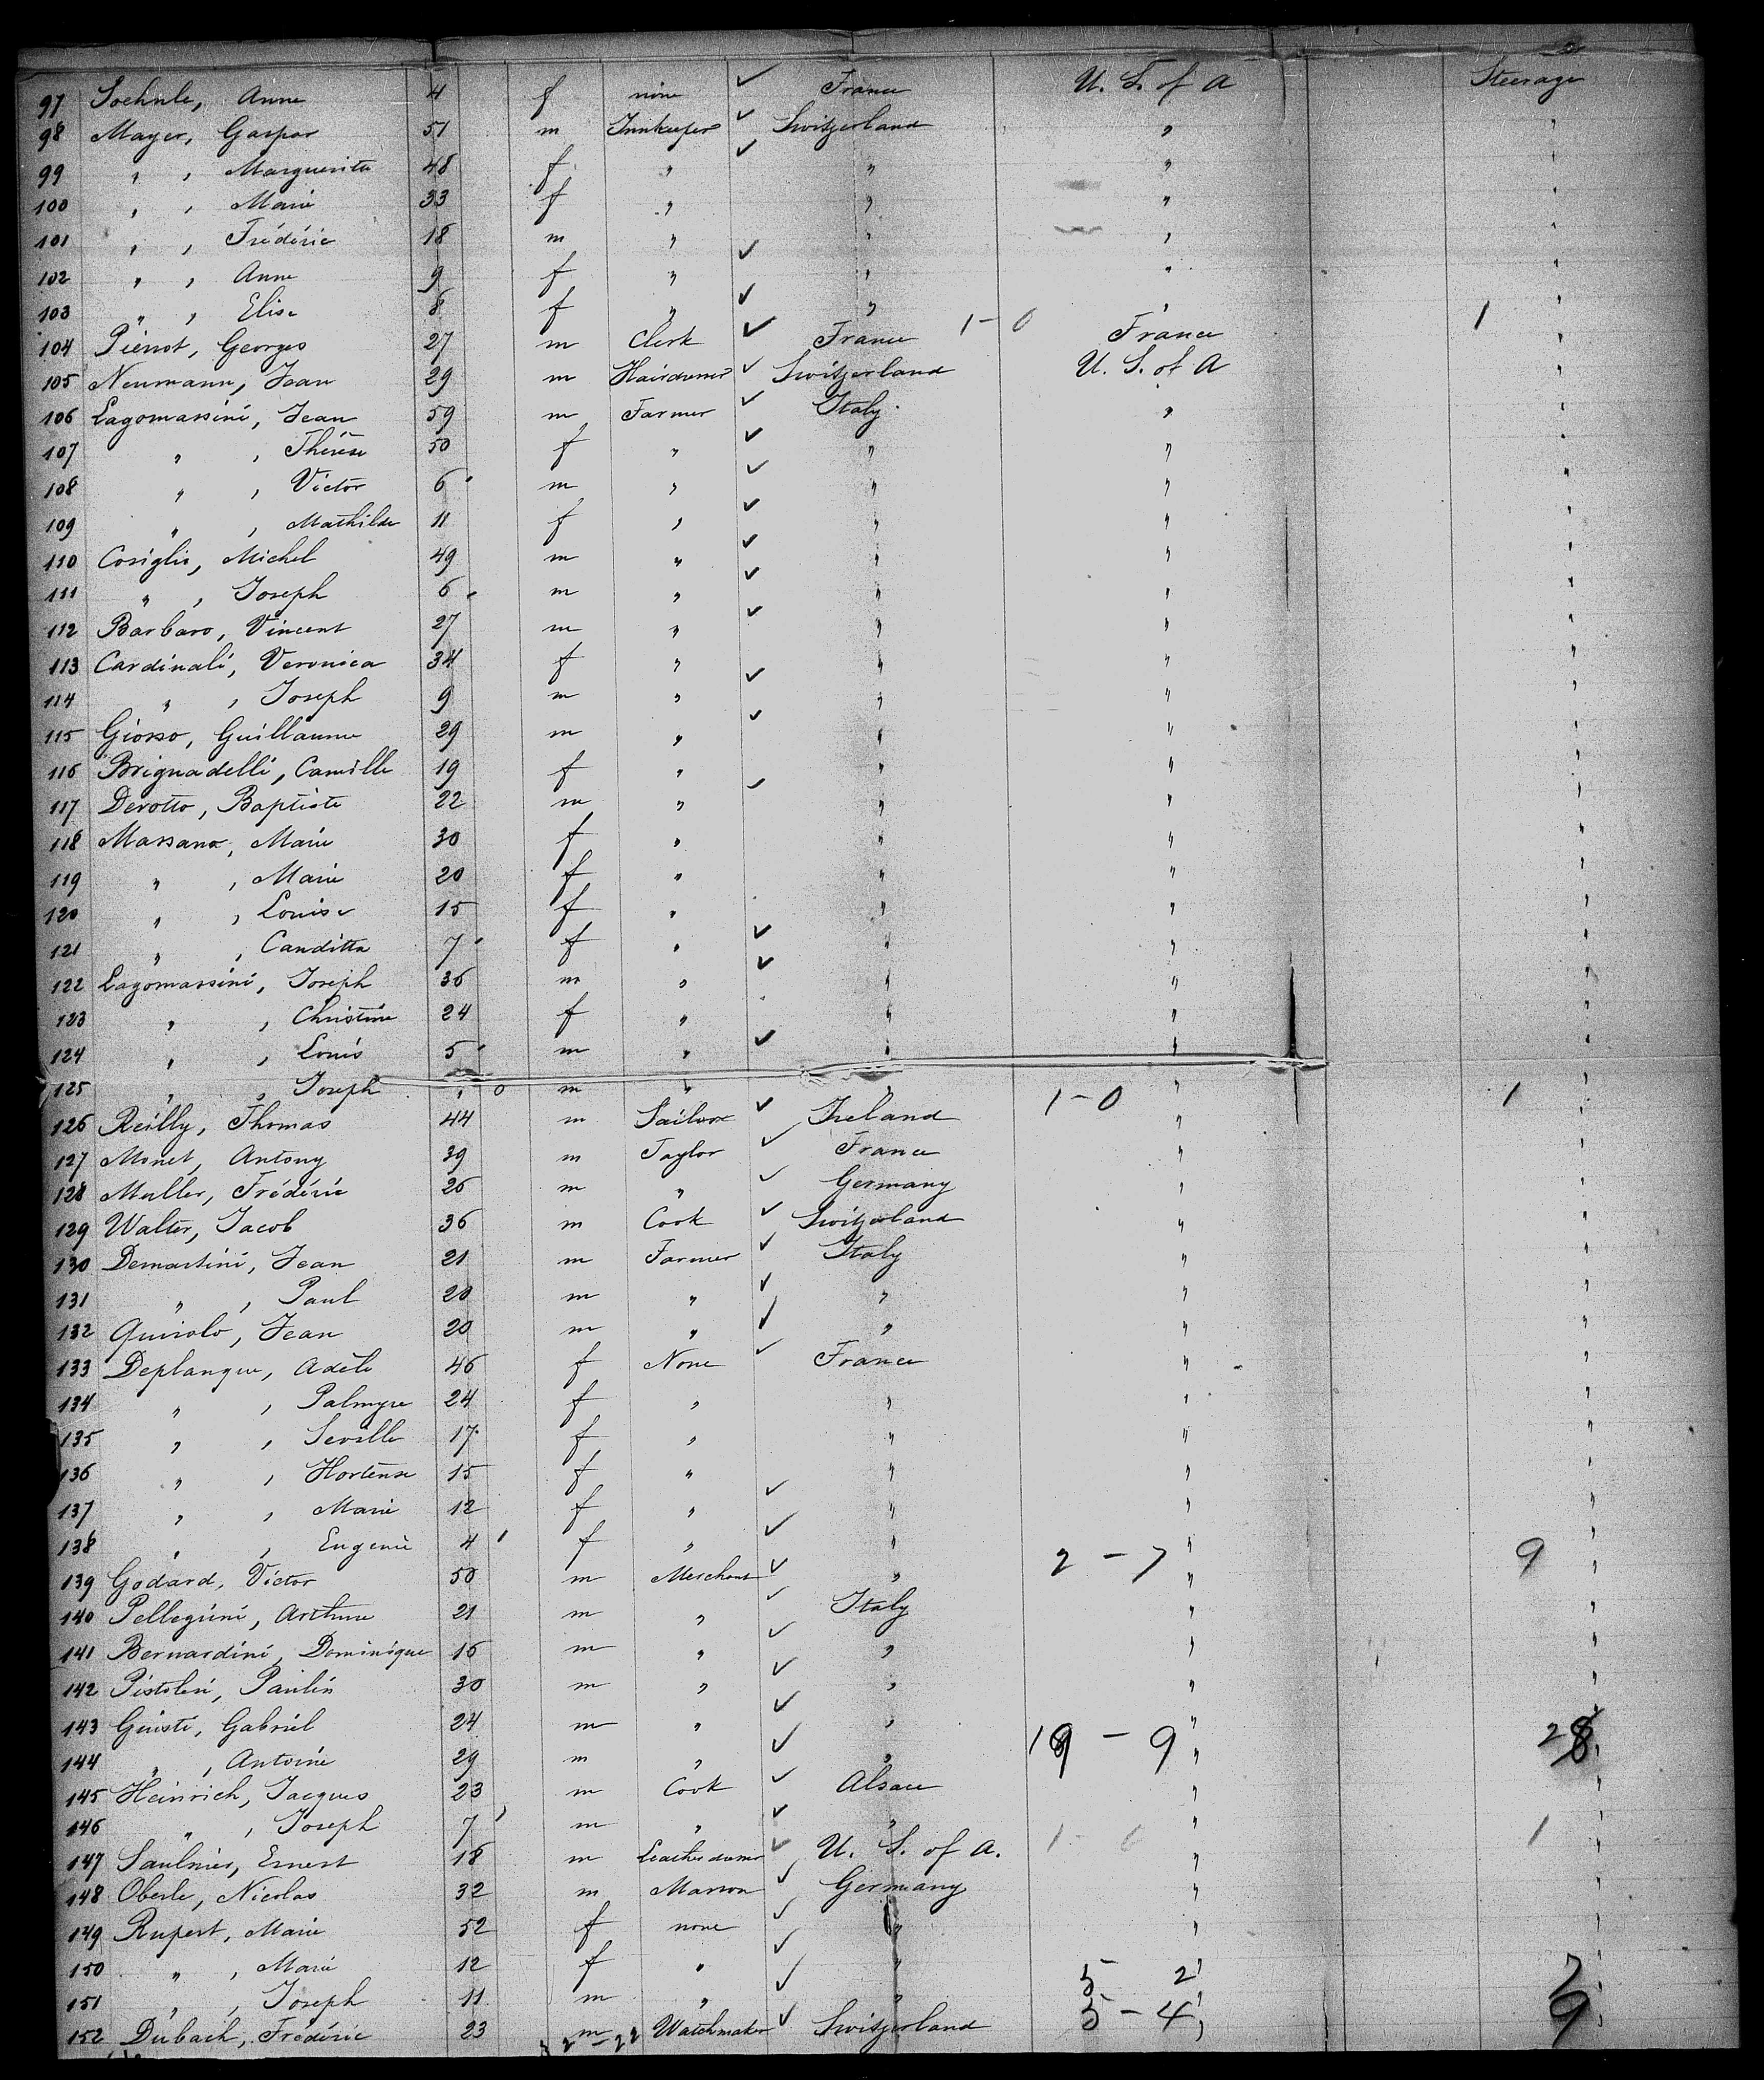 97 Soehnle, Anne 4 f none ✓ France U. S. of A Steerage
98 Mayer, Gaspar 51 m Innkeeper ✓ Switzerland " "
99 " , Marguerite 48 f " ✓ " " "
100 " , Marie 33 f " " " "
101 " , Frédéric 18 m " " " "
102 " , Anne 9 f " ✓ " " "
103 " , Elise 8 f " ✓ " " "
104 Pierrot, Georges 27 m Clerk ✓ France 1-0 France 1
105 Neumann, Jean 29 m Hairdresser ✓ Switzerland U. S. of A "
106 Lagomassini, Jean 59 m Farmer ✓ Italy " "
107 " , Thérèse 50 f " ✓ " " "
108 " , Victor 6 m " ✓ " " "
109 " , Mathilde 11 f " ✓ " " "
110 Cosiglio, Michel 49 m " ✓ " " "
111 " , Joseph 6 m " ✓ " " "
112 Barbaro, Vincent 27 m " ✓ " " "
113 Cardinali, Veronica 34 f " " " "
114 " , Joseph 9 m " ✓ " " "
115 Giosso, Guillaume 29 m " ✓ " " "
116 Brignadelli, Camille 19 f " " " "
117 Devotto, Baptiste 22 m " ✓ " " "
118 Massano, Marie 30 f " " " "
119 " , Marie 20 f " " " "
120 " , Louise 15 f " " " "
121 " , Canditta 7 f " ✓ " " "
122 Lagomassini, Joseph 36 m " ✓ " " "
123 " , Christine 24 f " " " "
124 " , Louis 5 m " ✓ " " "
125 " , Joseph 0 m " " " "
126 Reilly, Thomas 44 m Sailor ✓ Ireland 1-0 " 1
127 Monet, Antony 39 m Taylor ✓ France " "
128 Muller, Frédéric 26 m " ✓ Germany " "
129 Walter, Jacob 36 m Cook ✓ Switzerland " "
130 Demartini, Jean 21 m Farmer ✓ Italy " "
131 " , Paul 20 m " ✓ " " "
132 Quirolo, Jean 20 m " ✓ " " "
133 Deplanque, Adèle 46 f None ✓ France " "
134 " , Palmyre 24 f " " " "
135 " , Seville 17 f " " " "
136 " , Hortense 15 f " " " "
137 " , Marie 12 f " ✓ " " "
138 " , Eugenie 4 f " ✓ " " "
139 Godard, Victor 50 m Merchant ✓ " 2-7 " 9
140 Pellegrini, Arthure 21 m " ✓ Italy " "
141 Bernardini, Dominique 16 m " ✓ " " "
142 Pistolesi, Paulin 30 m " ✓ " " "
143 Giusti, Gabriel 24 m " ✓ " " "
144 " , Antoine 29 m " ✓ " 19 - 9 " 28
145 Heinrich, Jacques 23 m Cook ✓ Alsace " "
146 " , Joseph 7 m " ✓ " " "
147 Saulnier, Ernest 18 m Leather dresser ✓ U. S. of A. 1- 0 " 1
148 Oberle, Nicolas 32 m Masson ✓ Germany " "
149 Rupert, Marie 52 f none ✓ " " "
150 " , Marie 12 f " ✓ " " "
151 " , Joseph 11 m " ✓ " 5 2 " 7
152 Dubach, Frédéric 23 m Watchmaker ✓ Switzerland 5 - 4 " 9